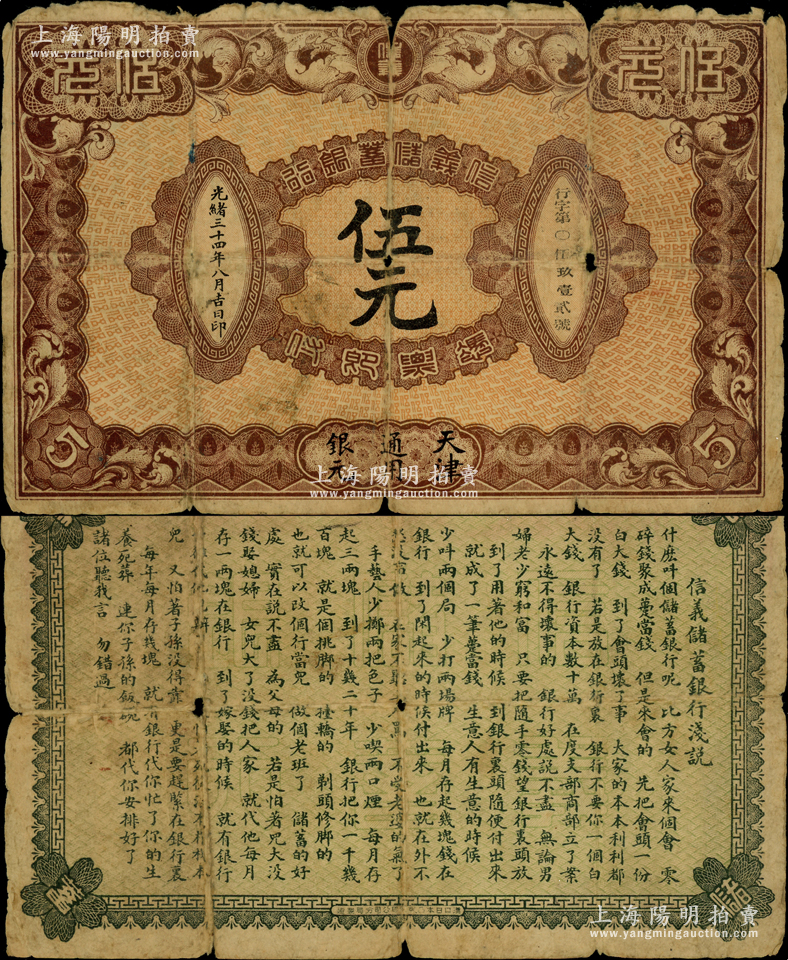 上海陽明拍賣
www.yangmingauction.com
上海陽明拍賣
www.yangmingauction.com
伍元
伍元
信義儲蓄銀行
行字第〇仟玖壹貳號
伍元
光緒三十四年八月吉日印
憑票即付
5
5
天津
通用
銀元
上海陽明拍賣
www.yangmingauction.com
信義儲蓄銀行淺説
什麽呌個儲蓄銀行呢 比方女人家來個會 零
碎錢聚成薹當錢 但是來會的 先把會頭一份
白大錢 到了會頭壞了事 大家的本本利利都
没有了 若是放在銀行裏 銀行不要你一個白
大錢 銀行資本數十萬 在度支部商部立了案
永遠不得壞事的 銀行好處説不盡 無論男
婦老少窮和富 只要把隨手零錢望銀行裏頭放
到了用著他的時候 到銀行裏頭隨便付出來
就成了一筆薹當錢 生意人有生意的時候
少呌兩個局 少打兩場牌 每月存起幾塊錢在
銀行 到了閒起來的時候付出來 也就在外不
不受老婆的氣了
手藝人少擲兩把色子 少喫兩口煙 每月存
起三兩塊 到了十幾二十年 銀行把你一千幾
百塊 就是個挑脚的 擡轎的 剃頭修脚的
也就可以改個行當兒 做個老班了 儲蓄的好
處 實在説不盡 為父母的 若是怕著兒大没
錢娶媳婦 女兒大了没錢把人家 就代他每月
存一兩塊在銀行 到了嫁娶的時候 就有銀行
兒 又怕著子孫没得靠 更是要趕緊在銀行裏
每年每月存幾塊 就有銀行代你忙了你的生
養死葬 連你子孫的飯碗 都代你安排好了
諸位聽我言 勿錯過
蓄
儲
上海陽明拍賣
www.yangmingauction.com